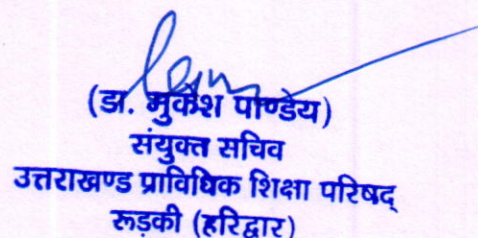 (डा. मुकेश पाण्डेय)
संयुक्त सचिव
उत्तराखण्ड प्राविधिक शिक्षा परिषद्
रूड़की (हरिद्वार)